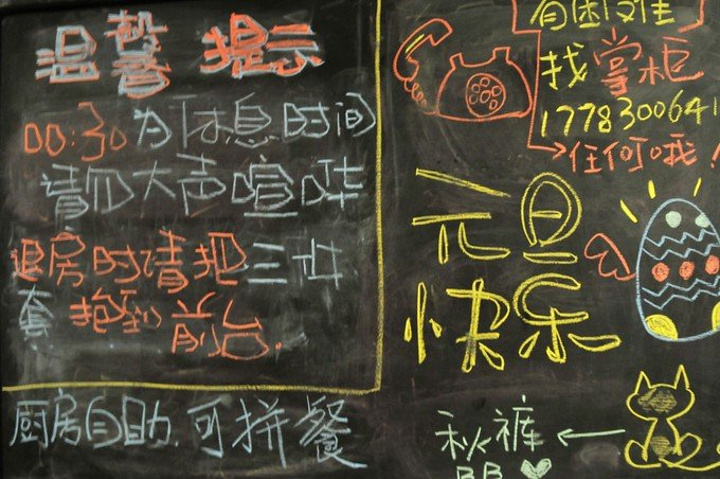 温馨 提示
00:30为休息时间
请勿大声喧哗
退房时请把三件
套抱到前台.
厨房自助.可拼餐
有困难
找掌柜
1778300641
任何哦!
元旦
快乐
秋裤
BB